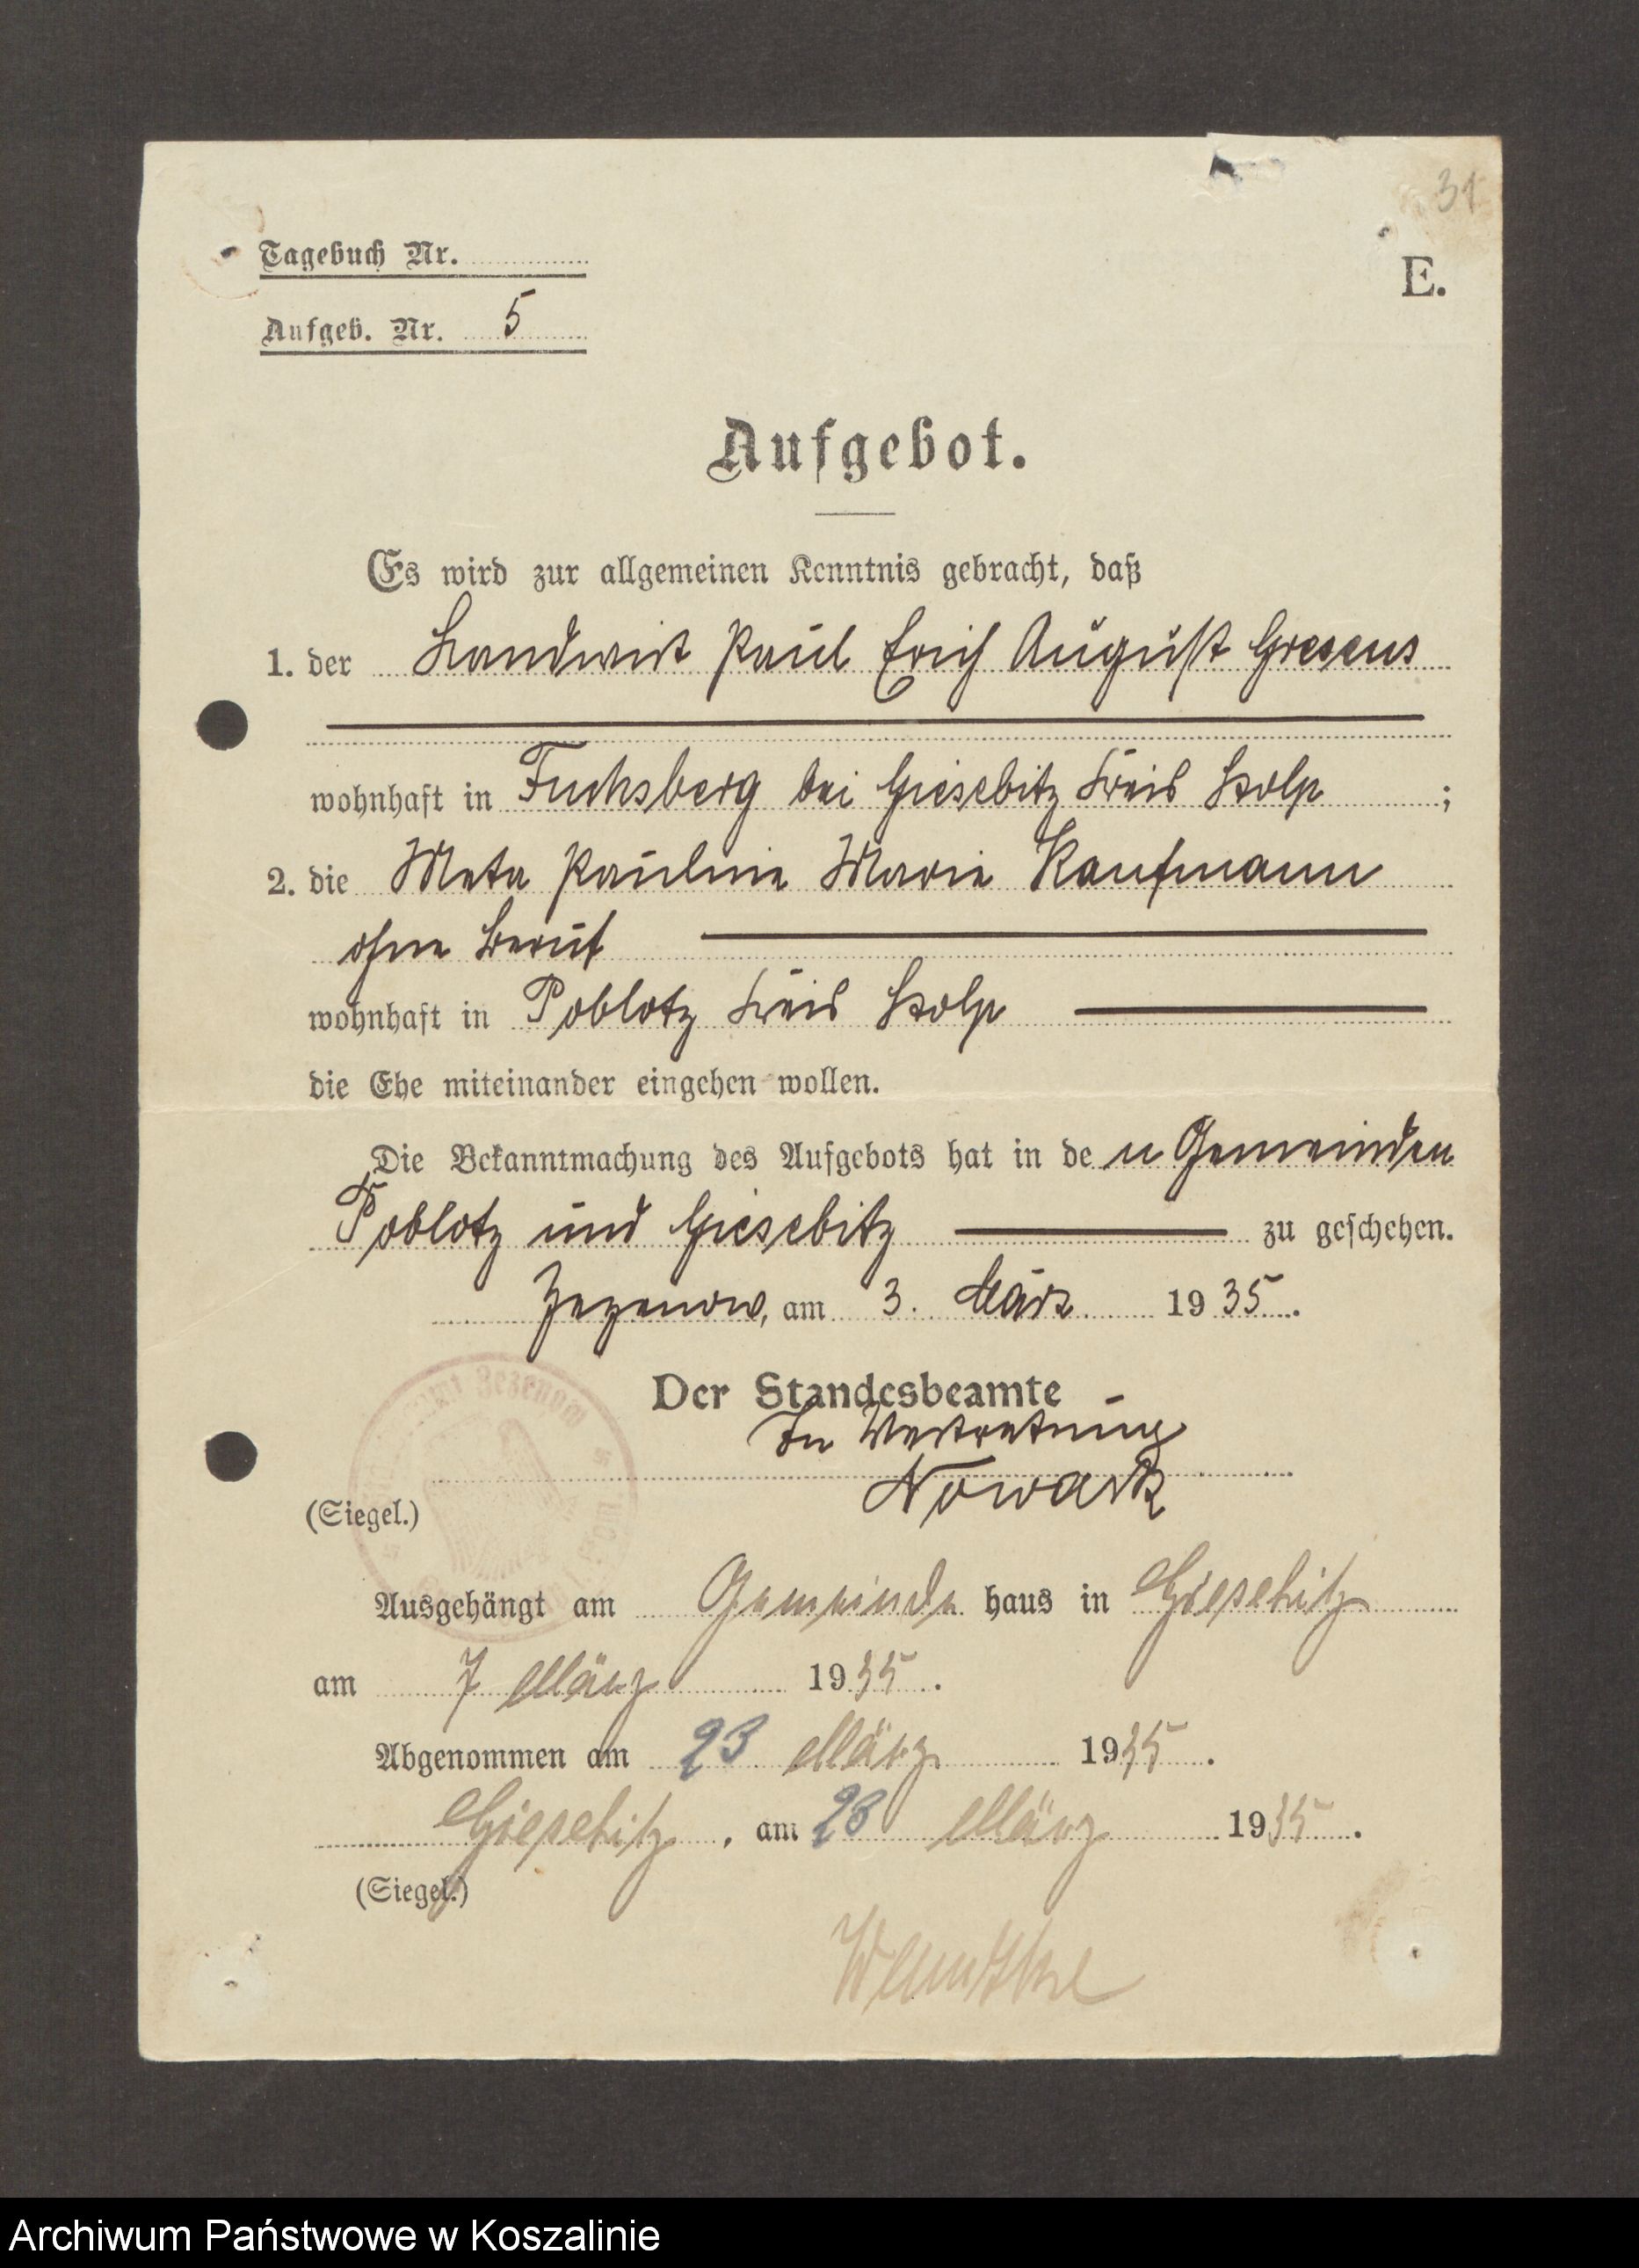 31
Tagebuch Nr.
E.
Aufgeb. Nr. 5
Aufgebot.
Es wird zur allgemeinen Kenntnis gebracht, daß
1. der Landwirt Paul Erich August Gresens
wohnhaft in Fuchsberg bei Giesebitz Kreis Stolp ;
2. die Meta Pauline Marie Kaufmann
ohne Beruf
wohnhaft in Poblotz Kreis Stolp
die Ehe miteinander eingehen wollen.
Die Bekanntmachung des Aufgebots hat in de n Gemeinden
Poblotz und Giesebitz zu geschehen.
Zezenow, am 3. März 1935.
Der Standesbeamte
In Vertretung
Nowack
(Siegel.)
Zezenow
Ausgehängt am Gemeinde haus in Giesebitz
am 7 März 1935.
Abgenommen am 23 März 1935.
Giesebitz, am 23 März 1935.
(Siegel.)
Archiwum Państwowe w Koszalinie